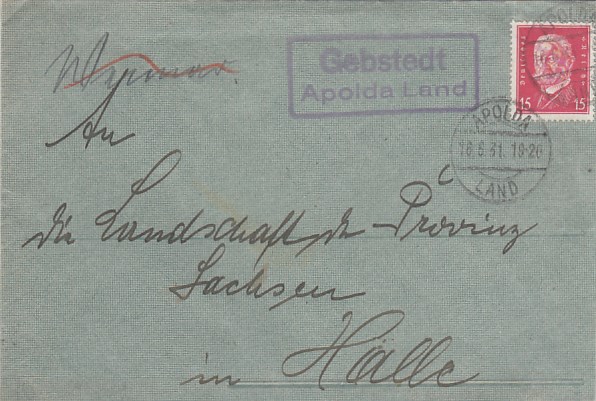 Gebstedt
Apolda Land
DEUTSCHES REICH
15 15
APOLDA
18.6.31. 19-20
LAND
An
die Landschaft der Provinz
Sachsen
in Halle